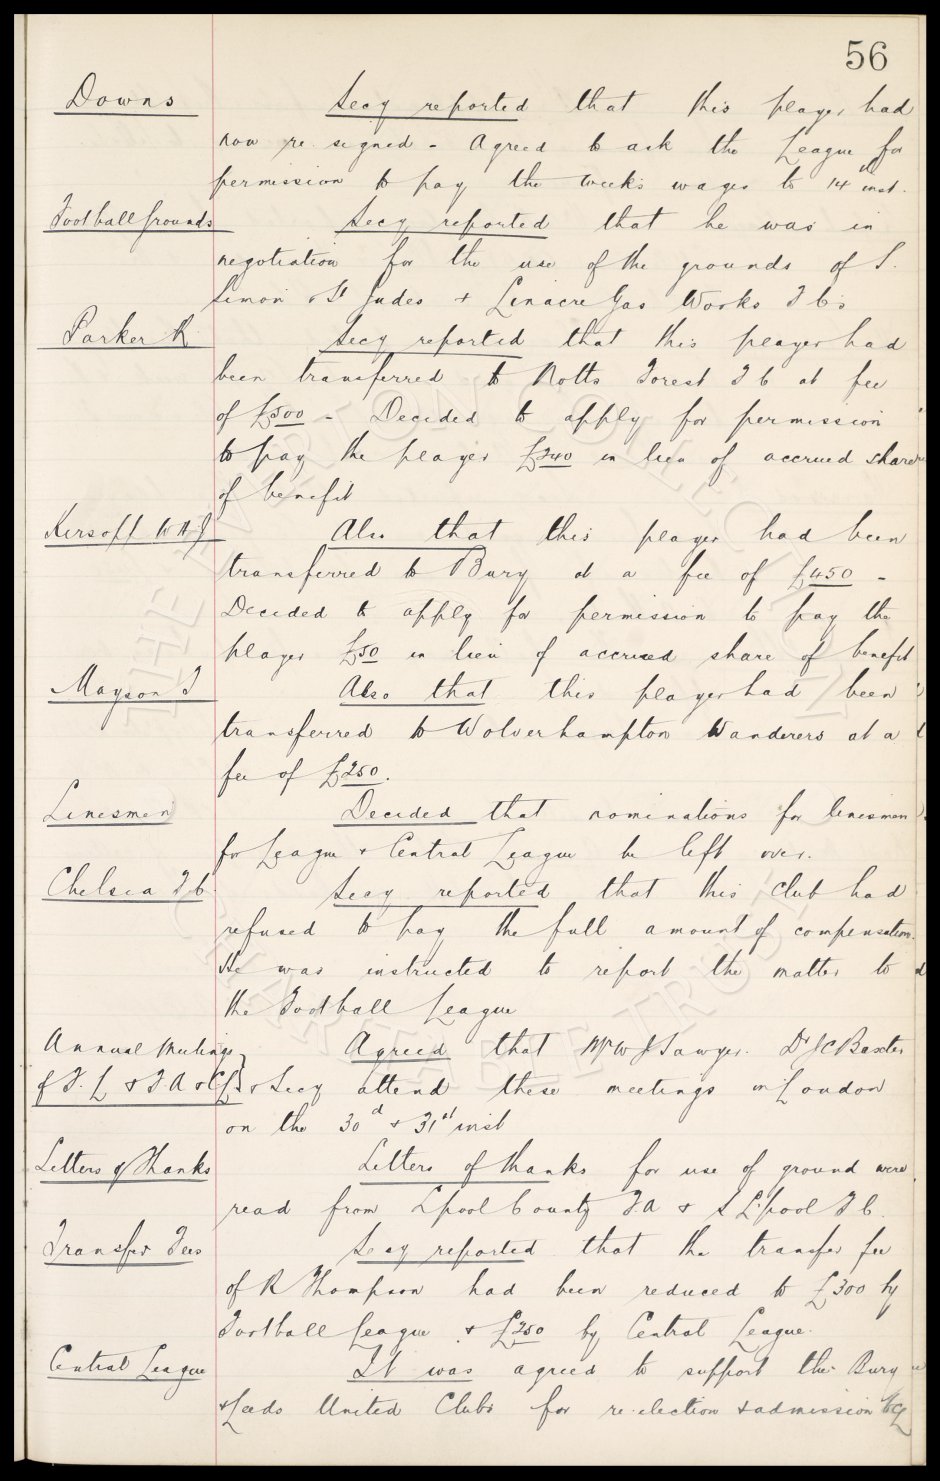 56
Downs
Secy reported that this player had
now re-signed - Agreed to ask the League for
permission to pay the week's wages to 14th inst.
Football Grounds
Secy reported that he was in
negotiation for the use of the grounds of S.
Simon & St Judes & Linacre Gas Works F C's
Parker R
Secy reported that this player had
been transferred to Notts Forest F C at fee
of £500 - Decided to apply for permission
to pay the player £240 in lieu of accrued share
of benefit
Kirsopp W H J
Also that this player had been
transferred to Bury at a fee of £450 -
Decided to apply for permission to pay the
player £50 in lieu of accrued share of benefit
Mayson T
Also that this player had been
transferred to Wolverhampton Wanderers at a
fee of £250.
Linesmen
Decided that nominations for linesmen
for League & Central League be left over.
Chelsea F C
Secy reported that this club had
refused to pay the full amount of compensation.
He was instructed to report the matter to
the Football League
Annual Meetings
of F. L & F A & C L
Agreed that Mr W J Sawyer. Dr J C Baxter
& Secy attend these meetings in London
on the 30d & 31st inst
Letters of Thanks
Letters of thanks for use of ground were
read from Lpool County F A & S L'pool F C.
Transfer Fees
Secy reported that the transfer fee
of R Thompson had been reduced to £300 by
Football League & £250 by Central League.
Central League
It was agreed to support the Bury
& Leeds United Clubs for re-election & admission to CL
THE EVERTON COLLECTION
CHARITABLE TRUST